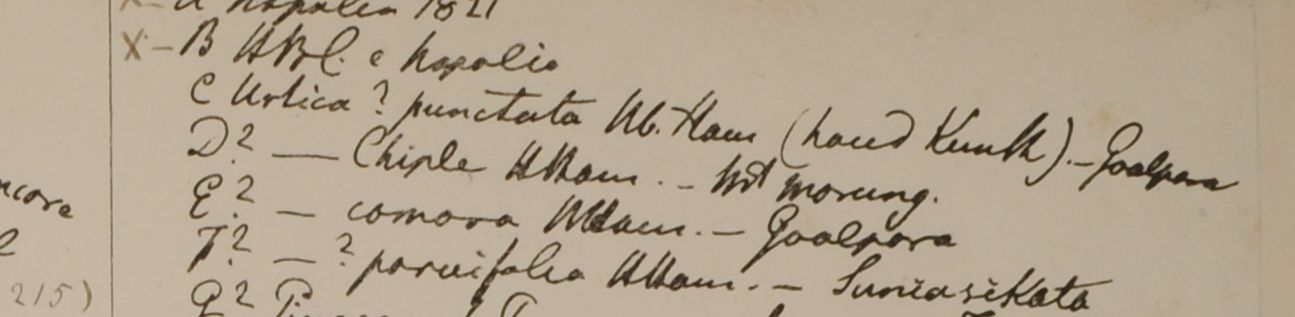 x - a Napalia 1821
x - B HBC. e Napalia
C Urtica ? punctata Hb. Ham (haud Kunth). - Goalpara
D? — Chiple HHam. - Hit morung.
E? — comosa HHam. - Goalpara
ncore
F? — ? parvifolia HHam. - Suniasikata
2
215)
G?